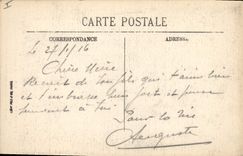 CARTE POSTALE
CORRESPONDANCE
ADRESSE
Le 27/1/16
Chère Mère
Reçoit de ton fils qui t'aime bien
et t'embrasse bien fort et pense
à toi
Pour la vie
Auguste